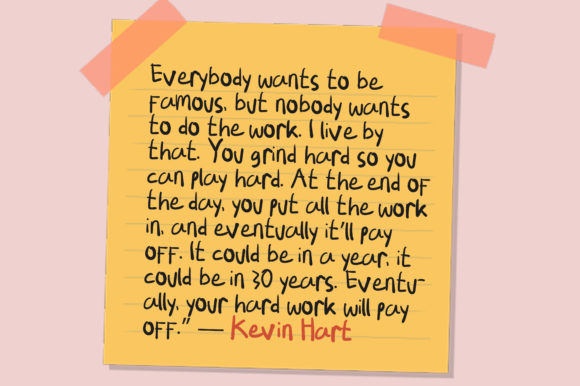 Everybody wants to be
famous, but nobody wants
to do the work. I live by
that. You grind hard so you
can play hard. At the end of
the day, you put all the work
in, and eventually it'll pay
off. It could be in a year, it
could be in 30 years. Eventu-
ally, your hard work will pay
off." — Kevin Hart